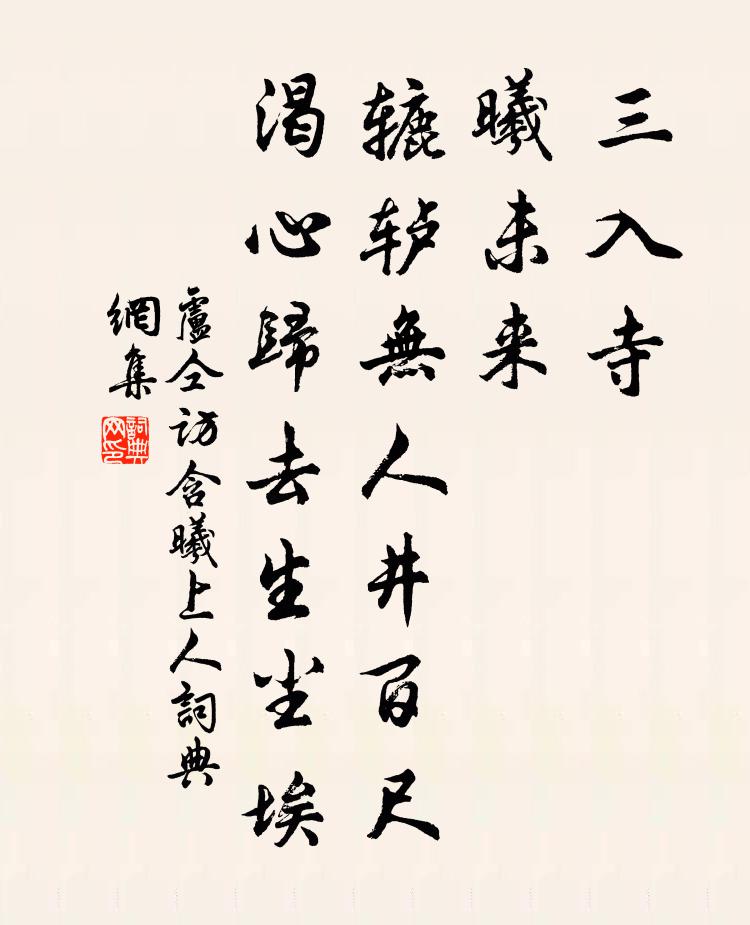 三入寺
曦未来
辘轳無人井百尺
渴心歸去生尘埃
盧仝访含曦上人詞典
網集
詞典网印